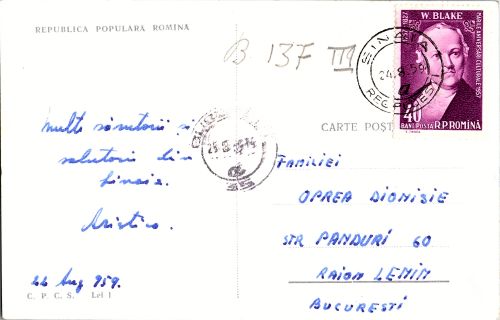 REPUBLICA POPULARA ROMÎNA
B 13F III
1827
W. BLAKE
MARILE ANIVERSARI CULTURALE 1957
40
BANI POSTA R.P.ROMINA
SINAIA
24.8.59
REG. PLOESTI
CARTE POȘT
Multe sănătății și
salutări din
Sinaia.
Aristica.
22 Aug 959.
C. P. C. S. Lei 1
Familiei
OPREA DIONISIE
STR PANDURI 60
RAION LENIN
BUCURESTI